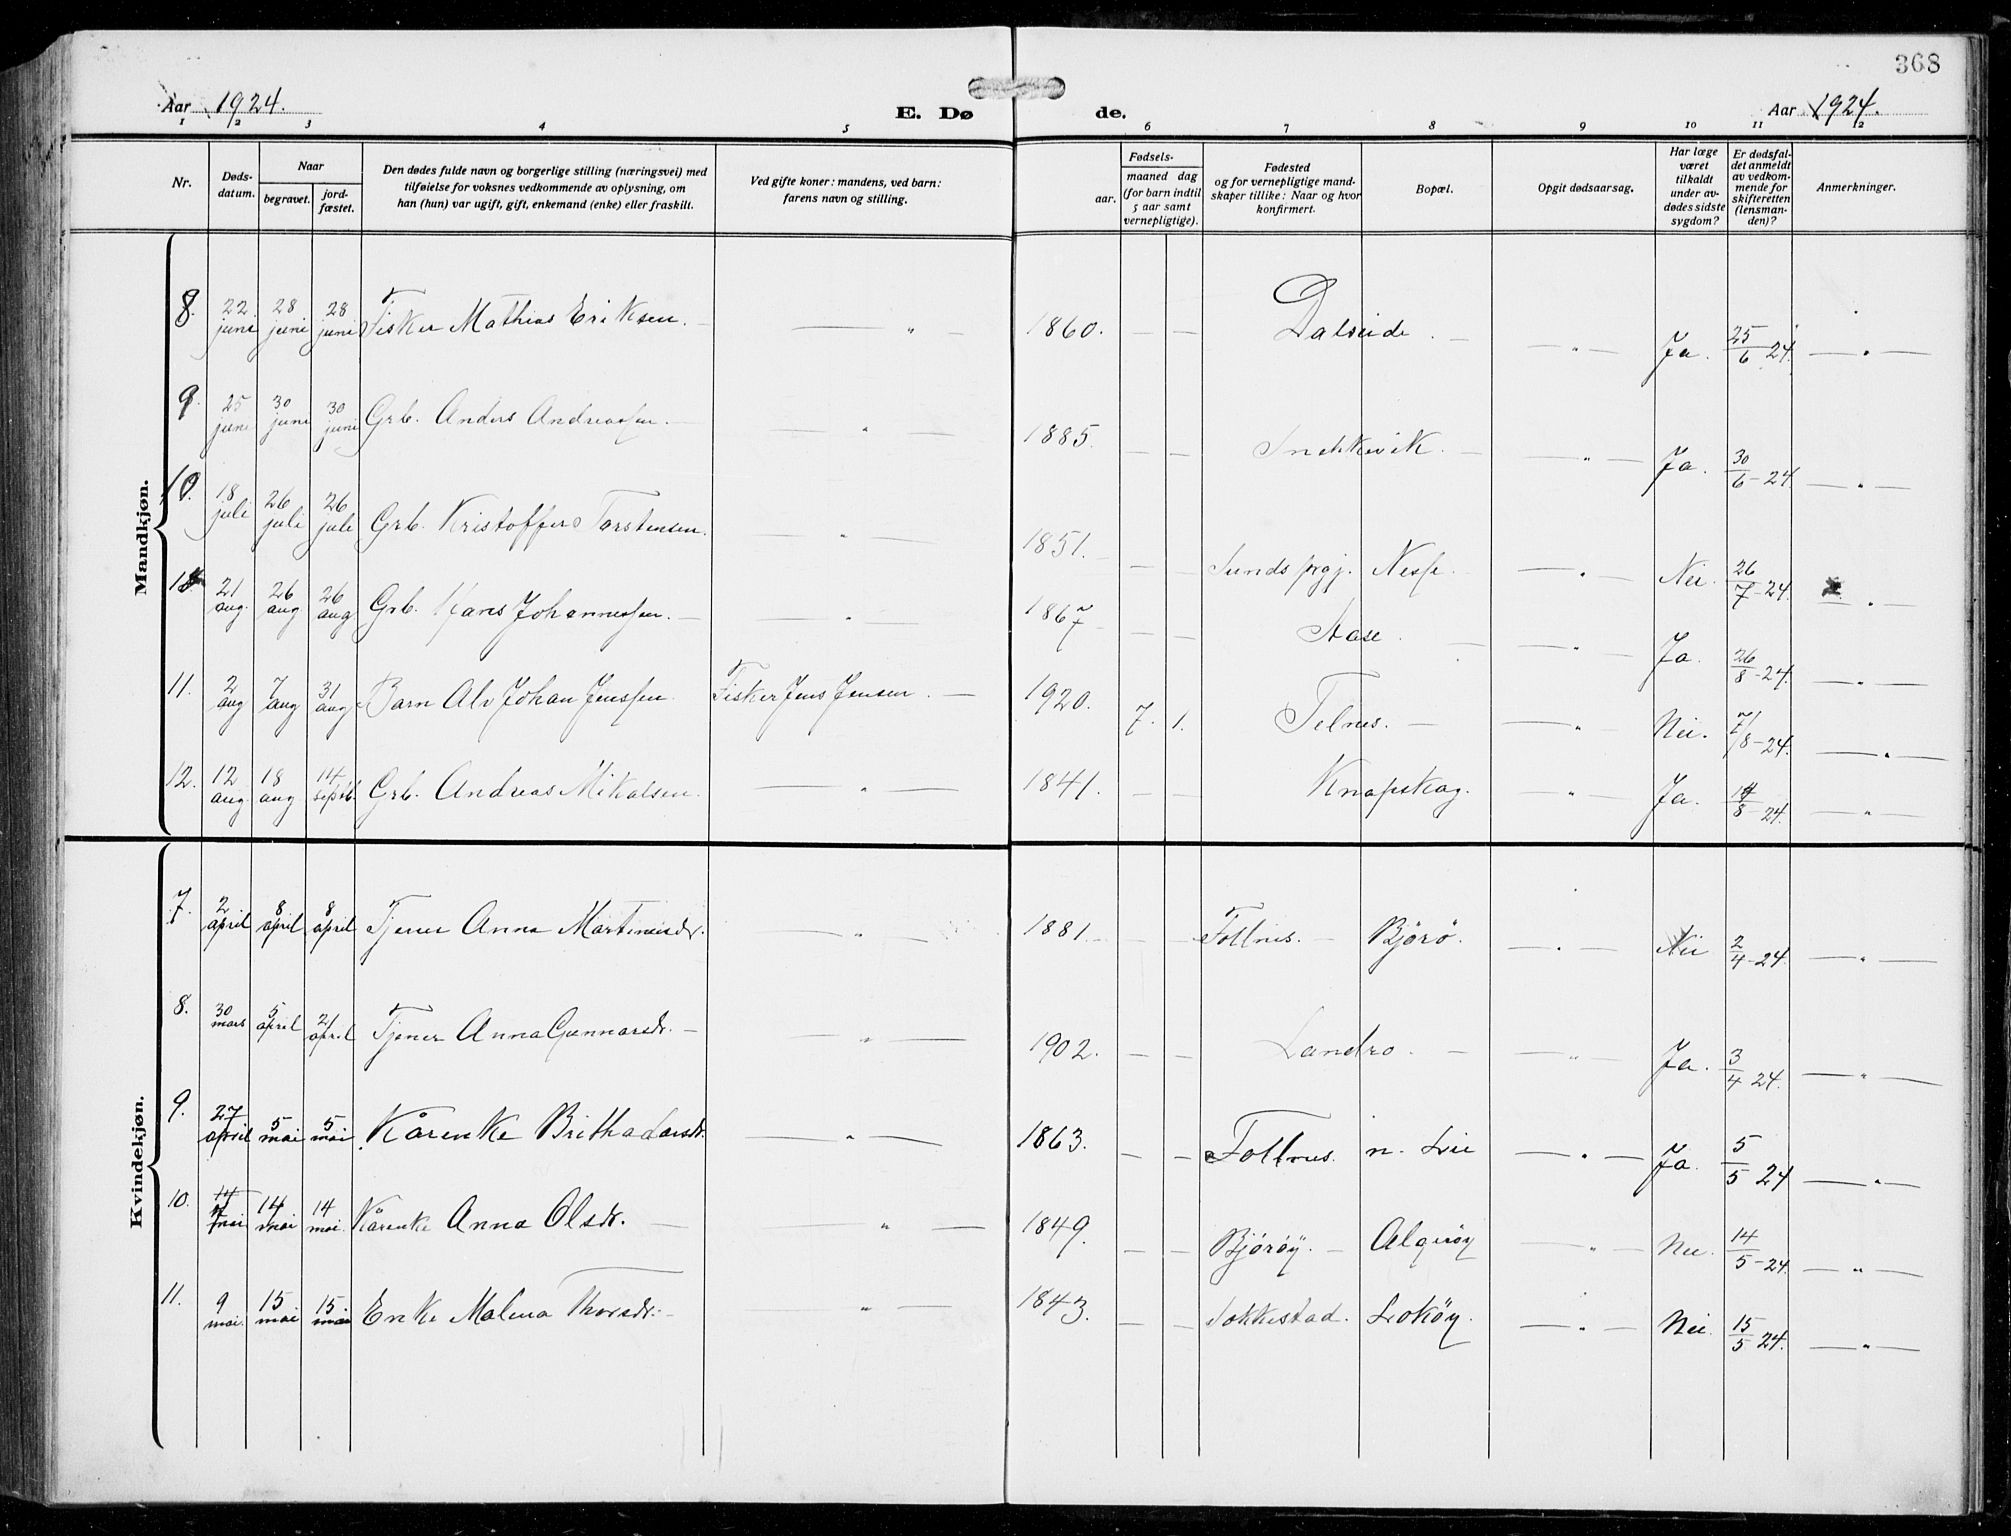 368
Aar 1924.
E. Dø de.
Aar 1924.
1 2 3 4 5 6 7 8 9 10 11 12
Nr.
Døds-
datum.
Naar
begravet.
jord-
fæstet.
Den dødes fulde navn og borgerlige stilling (næringsvei) med
tilføielse for voksnes vedkommende av oplysning, om
han (hun) var ugift, gift, enkemand (enke) eller fraskilt.
Ved gifte koner: mandens, ved barn:
farens navn og stilling.
Fødsels-
aar.
maaned dag
(for barn indtil
5 aar samt
vernepligtige).
Fødested
og for vernepligtige mand-
skaper tillike: Naar og hvor
konfirmert.
Bopæl.
Opgit dødsaarsag.
Har læge
været
tilkaldt
under av-
dødes sidste
sygdom?
Er dødsfal-
det anmeldt
av vedkom-
mende for
skifteretten
(lensman-
den)?
Anmerkninger.
Mandkjøn.
8. 22 juni 28 juni 28 juni Fisker Mathias Eriksen. — " — 1860. — — Dalseide. — — " — Ja. 25/6 24. — " —
9. 25 juni 30 juni 30 juni Grb. Anders Andreassen. — — " — 1885. — — Snekkevik. — — " — Ja. 30/6-24. — " —
10. 18 juli 26 juli 26 juli Grb. Kristoffer Torstensen. — " — 1851. — — Sunds prgj. Nesse. — " — Nei. 26/7-24. — " —
21 aug. 26 aug 26 aug Grb. Hans Johannessen. — — " — 1867 — — Aase. — — " — Ja. 26/8-24. — " —
11. 2 aug 7 aug 31 aug Barn Alv Johan Jenssen Fisker Jens Jensen. — 1920. 7. 1. Telnes. — — " — Nei. 7/8-24. — " —
12. 12 aug. 18 aug 14 septb. Grb. Andreas Mikalsen. — " — 1841. — — Knapskog. — " — Ja. 14/8-24. — " —
Kvindekjøn.
7. 2 april 8 april 8 april Tjener Anna Martinusdr. — " — 1881. — — Follnes. — Bjørø. — " — Nei 2/4-24. — " —
8. 30 mars 5 april 21 april Tjener Anna Gunnarsdr. — — " — 1902. — — Landro. — — " — Ja. 3/4 24. — " —
9. 27 april 5 mai 5 mai Kårenke Britha Larsdr. — " — 1863. — — Follnes. n. Lie — " — Ja. 5/5 24 — " —
10. mai 14 mai 14 mai. Kårenke Anna Olsdr. — — " — 1849. — — Bjørøy. — Algerøy — " — Nei. 14/5-24. — " —
11. 9 mai. 15 mai 15 mai Enke Malena Thorsdr. — — " — 1843. — — Tokkestad. Lokøy. — " — Nei. 15/5 24. — " —